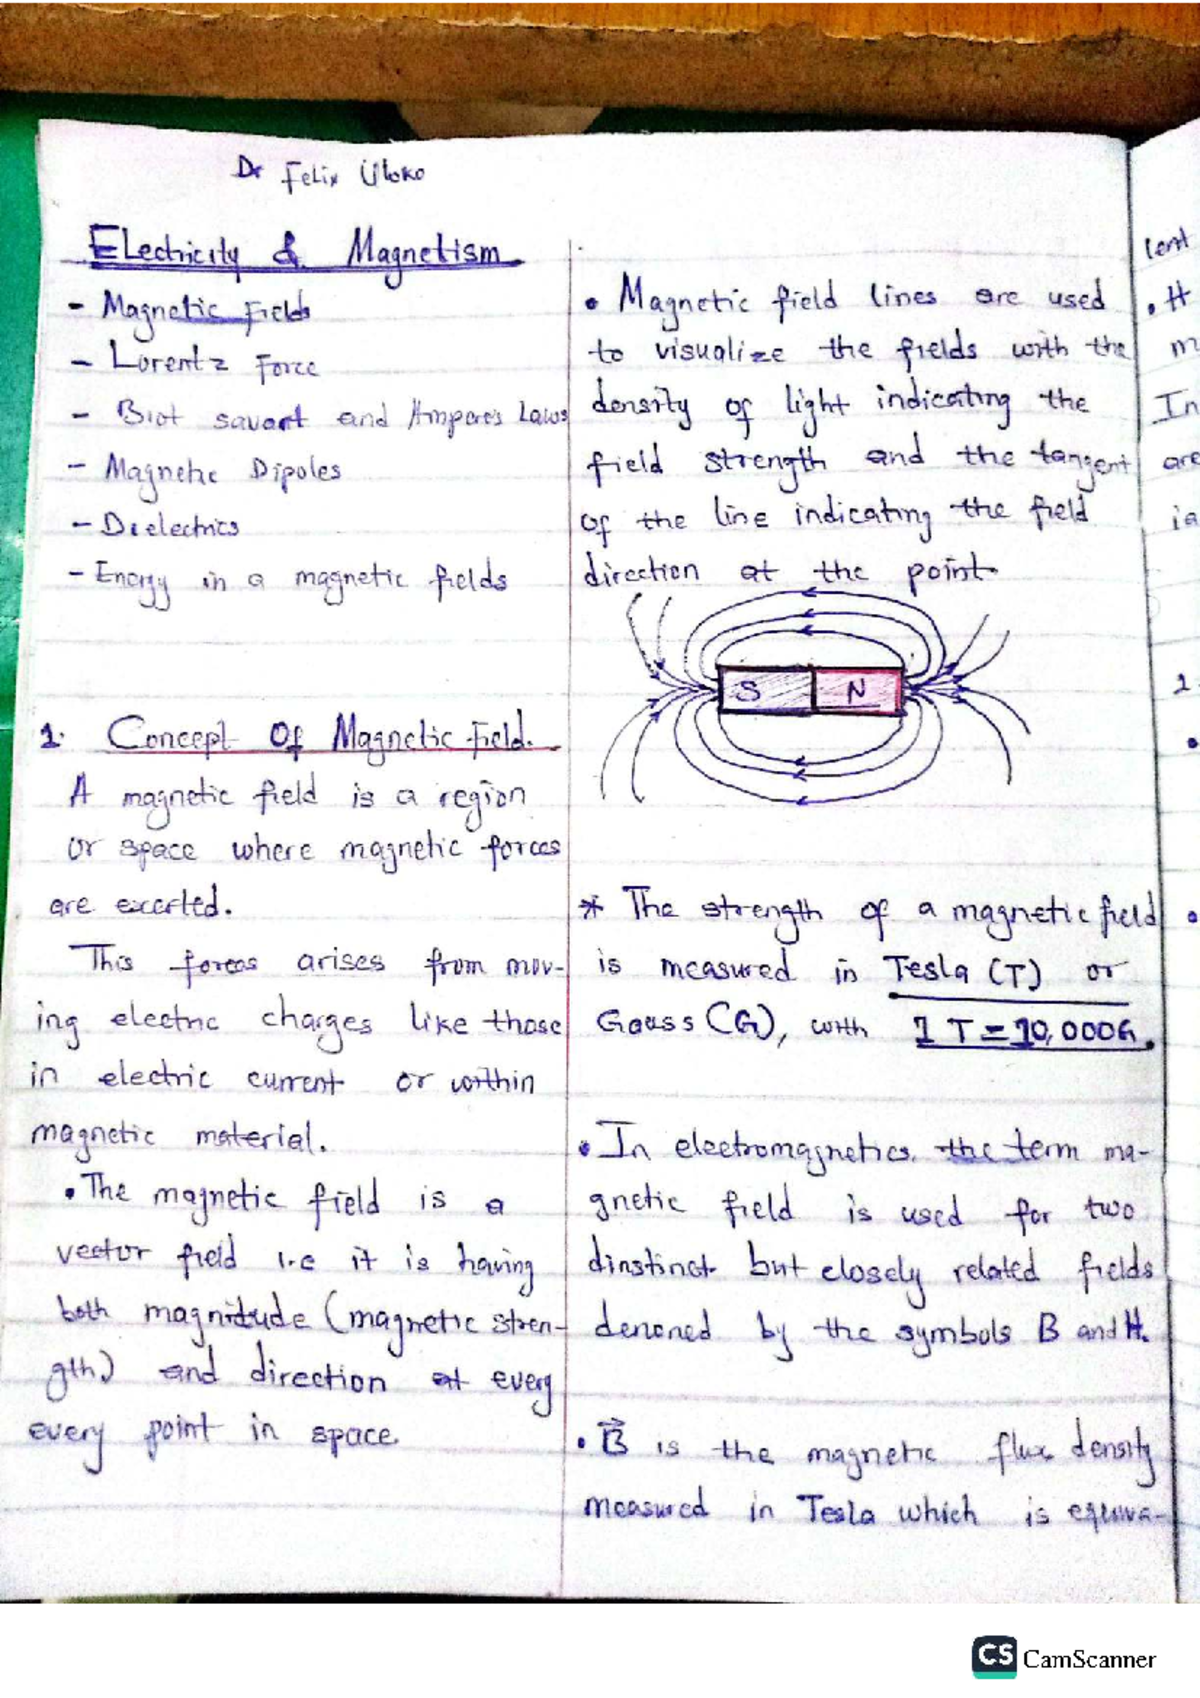 Dr Felix Uloko
Electricity & Magnetism
- Magnetic Fields
- Lorentz Force
- Biot savart and Ampere's Laws
- Magnetic Dipoles
- Dielectrics
- Energy in a magnetic fields
1. Concept Of Magnetic Field.
A magnetic field is a region
or space where magnetic forces
are excerted.
This forces arises from mov-
ing electric charges like those
in electric current or within
magnetic material.
• The magnetic field is a
vector field i.e it is having
both magnitude (magnetic stren-
gth) and direction at every
every point in space.
• Magnetic field lines are used
to visualize the fields with the
density of light indicating the
field strength and the tangent
of the line indicating the field
direction at the point.
S N
* The strength of a magnetic field
is measured in Tesla (T) or
Gauss (G), with 1 T = 10,000G.
• In electromagnetics, the term ma-
gnetic field is used for two
dinstinct but closely related fields
denoned by the symbols B and H.
• B⃗ is the magnetic flux density
measured in Tesla which is equiva-
lent
• H
m
In
are
ia
1.
CS CamScanner